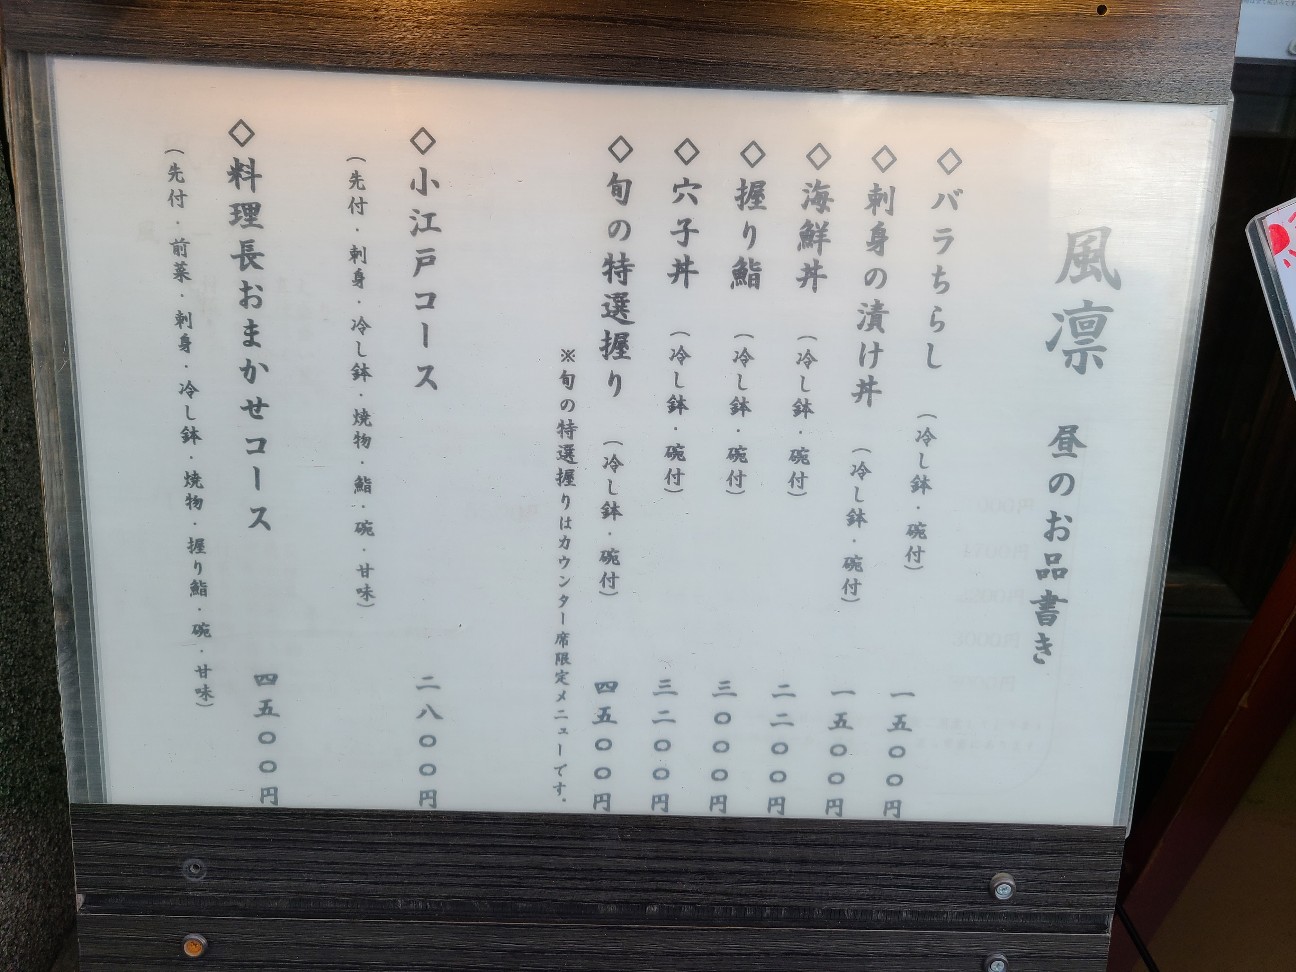 風凛 昼のお品書き
◇バラちらし （冷し鉢・碗付） 一五〇〇円
◇刺身の漬け丼 （冷し鉢・碗付） 一五〇〇円
◇海鮮丼 （冷し鉢・碗付） 二二〇〇円
◇握り鮨 （冷し鉢・碗付） 三〇〇〇円
◇穴子丼 （冷し鉢・碗付） 三二〇〇円
◇旬の特選握り （冷し鉢・碗付） 四五〇〇円
※旬の特選握りはカウンター席限定メニューです。
◇小江戸コース 二八〇〇円
（先付・刺身・冷し鉢・焼物・鮨・碗・甘味）
◇料理長おまかせコース 四五〇〇円
（先付・前菜・刺身・冷し鉢・焼物・握り鮨・碗・甘味）